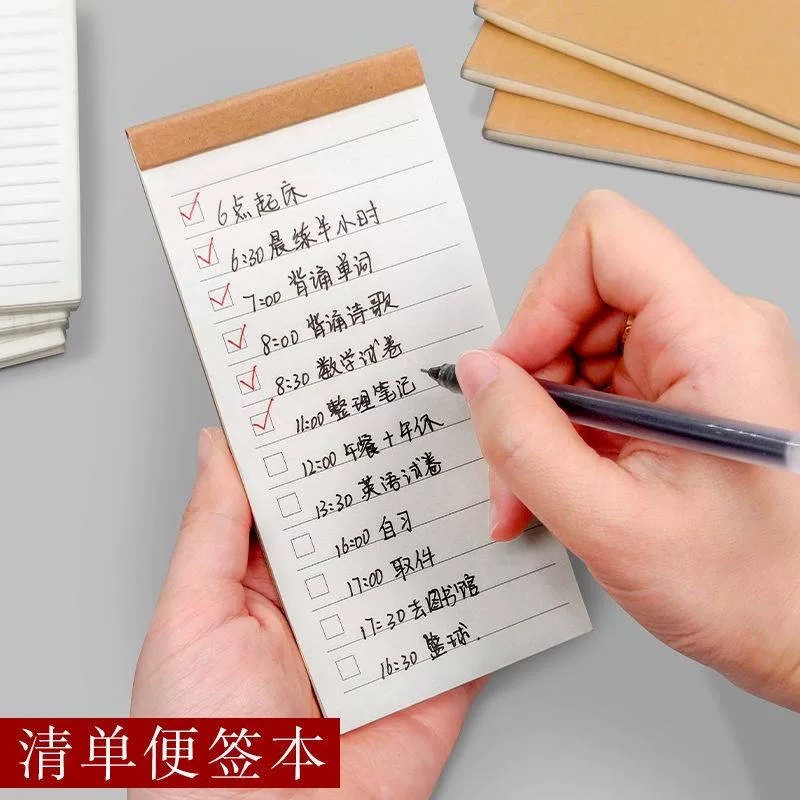 6点起床
6:30 晨练半小时
7:00 背诵单词
8:00 背诵诗歌
8:30 数学试卷
11:00 整理笔记
12:00 午餐+午休
13:30 英语试卷
16:00 自习
17:00 取件
17:30 去图书馆
16:30 篮球.
清单便签本